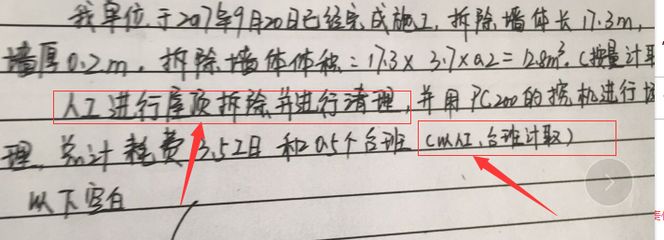 我单位于2017年9月20日已经完成施工,拆除墙体长17.3m,
墙厚0.2m,拆除墙体体积:17.3×3.7×0.2=12.8m³.(按量计取
人工进行屋顶拆除并进行清理,并用PC200的挖机进行
理,总计耗费3.5工日和0.5个台班(以人工、台班计取)
以下空白